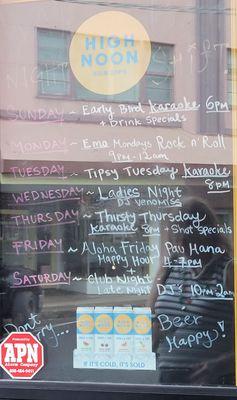 HIGH
NOON
SUNDAY ~ Early Bird Karaoke 6pm
+ Drink Specials
MONDAY ~ Emo Mondays Rock n' Roll
9pm - 12am
TUESDAY ~ Tipsy Tuesday Karaoke
8pm
WEDNESDAY ~ Ladies Night
DJ Venomiss
THURSDAY ~ Thirsty Thursday
Karaoke 8pm + Shot Specials
FRIDAY ~ Aloha Friday Pau Hana
Happy Hour 4-7pm
+
SATURDAY ~ Club Night
Late Night DJ's 10pm-2am
Don't
Beer
Happy!
Protected By
APN
Alarm Company
IF IT'S COLD, IT'S SOLD